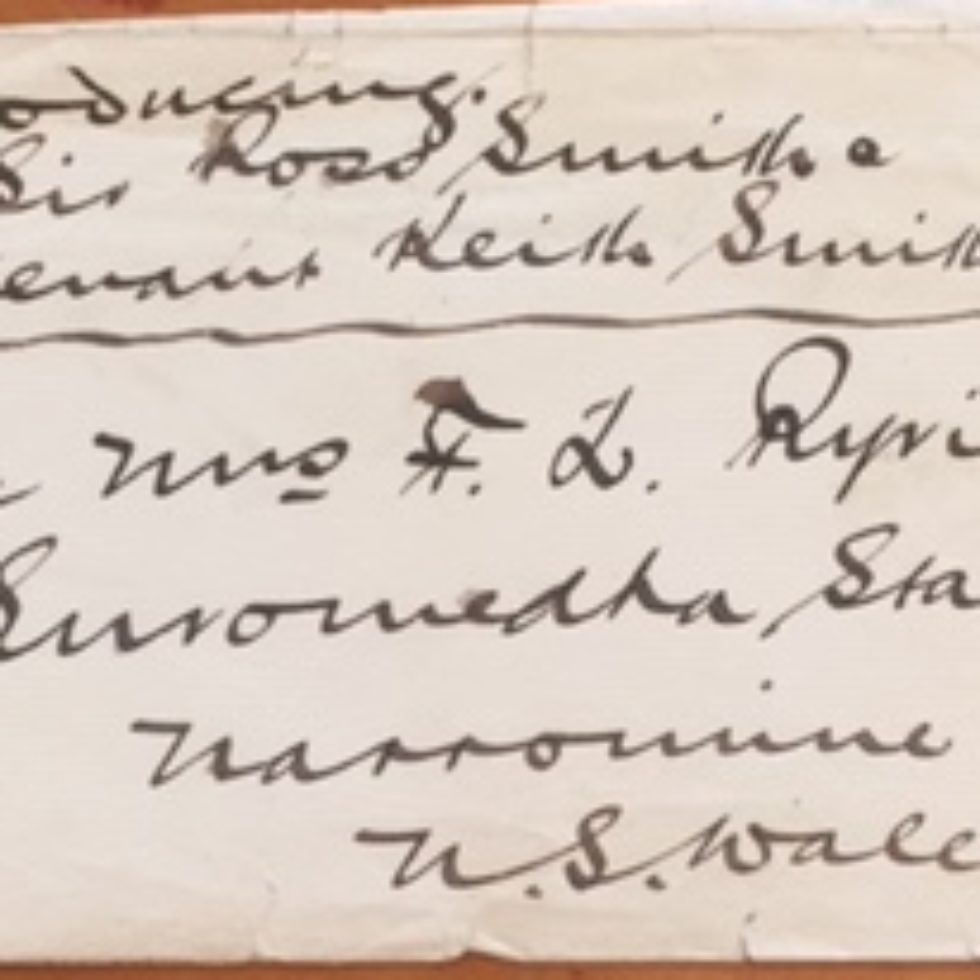 oducing.
Sir Ross Smith &
tenant Keith Smith
Mrs F. L. Ryri
Euromedha, Sta
Narromine
N.S. Wale